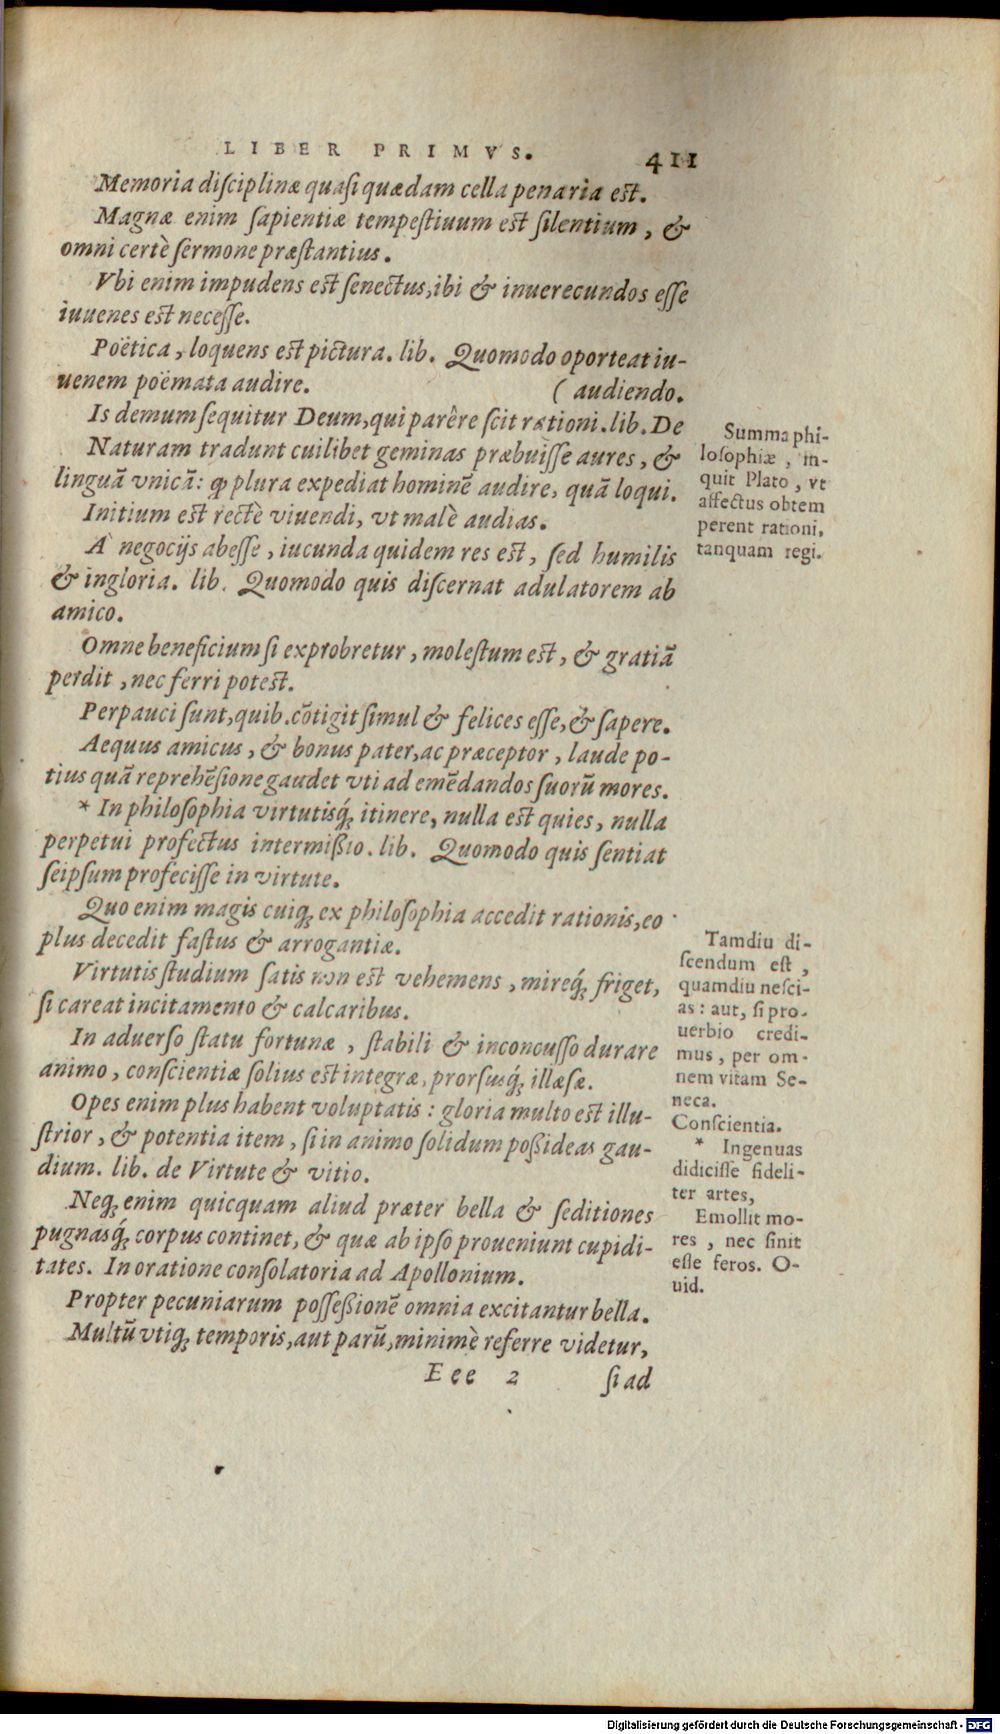 LIBER PRIMVS. 411
Memoria disciplinæ quasi quædam cella penaria est.
Magnæ enim sapientiæ tempestiuum est silentium, &
omni certè sermone præstantius.
Vbi enim impudens est senectus, ibi & inuerecundos esse
iuuenes est necesse.
Poëtica, loquens est pictura. lib. Quomodo oporteat iu-
uenem poëmata audire. (audiendo.
Is demum sequitur Deum, qui parêre scit rationi. lib. De
Naturam tradunt cuilibet geminas præbuisse aures, &
linguā vnicā: ꝙ plura expediat hominē audire, quā loqui.
Initium est rectè viuendi, vt malè audias.
A negocijs abesse, iucunda quidem res est, sed humilis
& ingloria. lib. Quomodo quis discernat adulatorem ab
amico.
Omne beneficium si exprobretur, molestum est, & gratiā
perdit, nec ferri potest.
Perpauci sunt, quib. cōtigit simul & felices esse, & sapere.
Aequus amicus, & bonus pater, ac præceptor, laude po-
tius quā reprehēsione gaudet vti ad emēdandos suorū mores.
* In philosophia virtutisq́; itinere, nulla est quies, nulla
perpetui profectus intermißio. lib. Quomodo quis sentiat
seipsum profecisse in virtute.
Quo enim magis cuiq; ex philosophia accedit rationis, eo
plus decedit fastus & arrogantiæ.
Virtutis studium satis non est vehemens, mireq́; friget,
si careat incitamento & calcaribus.
In aduerso statu fortunæ, stabili & inconcusso durare
animo, conscientiæ solius est integræ, prorsusq́; illæsæ.
Opes enim plus habent voluptatis: gloria multo est illu-
strior, & potentia item, si in animo solidum poßideas gau-
dium. lib. de Virtute & vitio.
Neq; enim quicquam aliud præter bella & seditiones
pugnasq́; corpus continet, & quæ ab ipso proueniunt cupidi-
tates. In oratione consolatoria ad Apollonium.
Propter pecuniarum posseßionē omnia excitantur bella.
Multū vtiq; temporis, aut parū, minimè referre videtur,
Eee 2 si ad
Summa phi-
losophiæ, in-
quit Plato, vt
affectus obtem
perent rationi,
tanquam regi.
Tamdiu di-
scendum est,
quamdiu nesci-
as: aut, si pro-
uerbio credi-
mus, per om-
nem vitam Se-
neca.
Conscientia.
* Ingenuas
didicisse fideli-
ter artes,
Emollit mo-
res, nec sinit
esse feros. O-
uid.
Digitalisierung gefördert durch die Deutsche Forschungsgemeinschaft - DFG